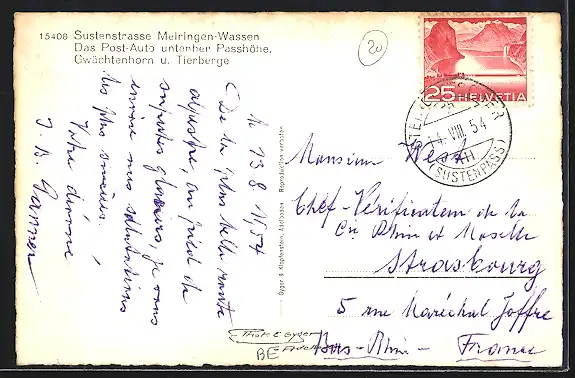 15408 Sustenstrasse Meiringen-Wassen
Das Post-Auto untenher Passhöhe.
Gwächtenhorn u. Tierberge
20
25 HELVETIA
14. VIII. 54
(SUSTENPASS)
le 13.8.1954
De la plus belle route
alpestre, au pied de
superbes glaciers, je vous
envoie mes salutations
les plus
Votre dévoué
Gyger & Klopfenstein, Adelboden Reproduktion verboten
Monsieur Hess
Chef-Vérificateur de la
Cie Rhin et Moselle
Strasbourg
5 rue Maréchal Joffre
Bas-Rhin - France
Phot E Gyger
BE Adelboden